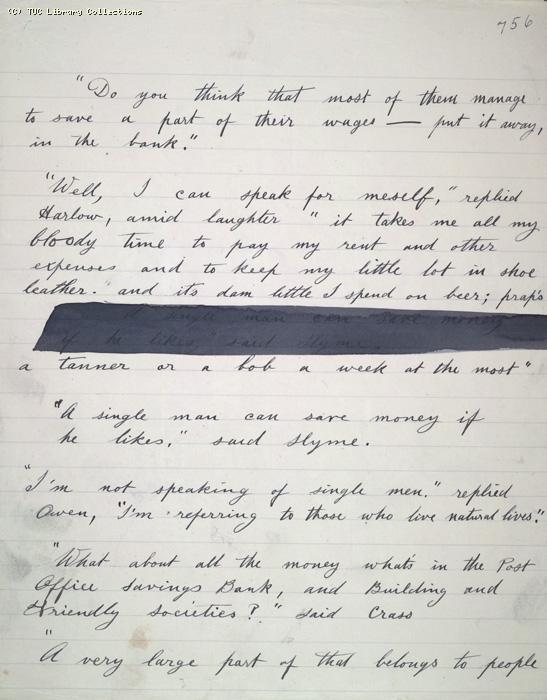 (C) TUC Library Collections
756
"Do you think that most of them manage
to save a part of their wages — put it away,
in the bank."
"Well, I can speak for meself," replied
Harlow, amid laughter "it takes me all my
bloody time to pay my rent and other
expenses and to keep my little lot in shoe
leather. and its dam little I spend on beer; p'raps
A single man can save money
if he likes," said Slyme.
a tanner or a bob a week at the most"
"A single man can save money if
he likes," said Slyme.
"I'm not speaking of single men." replied
Owen, "I'm referring to those who live natural lives."
"What about all the money what's in the Post
Office Savings Bank, and Building and
Friendly societies?" said Crass
"A very large part of that belongs to people